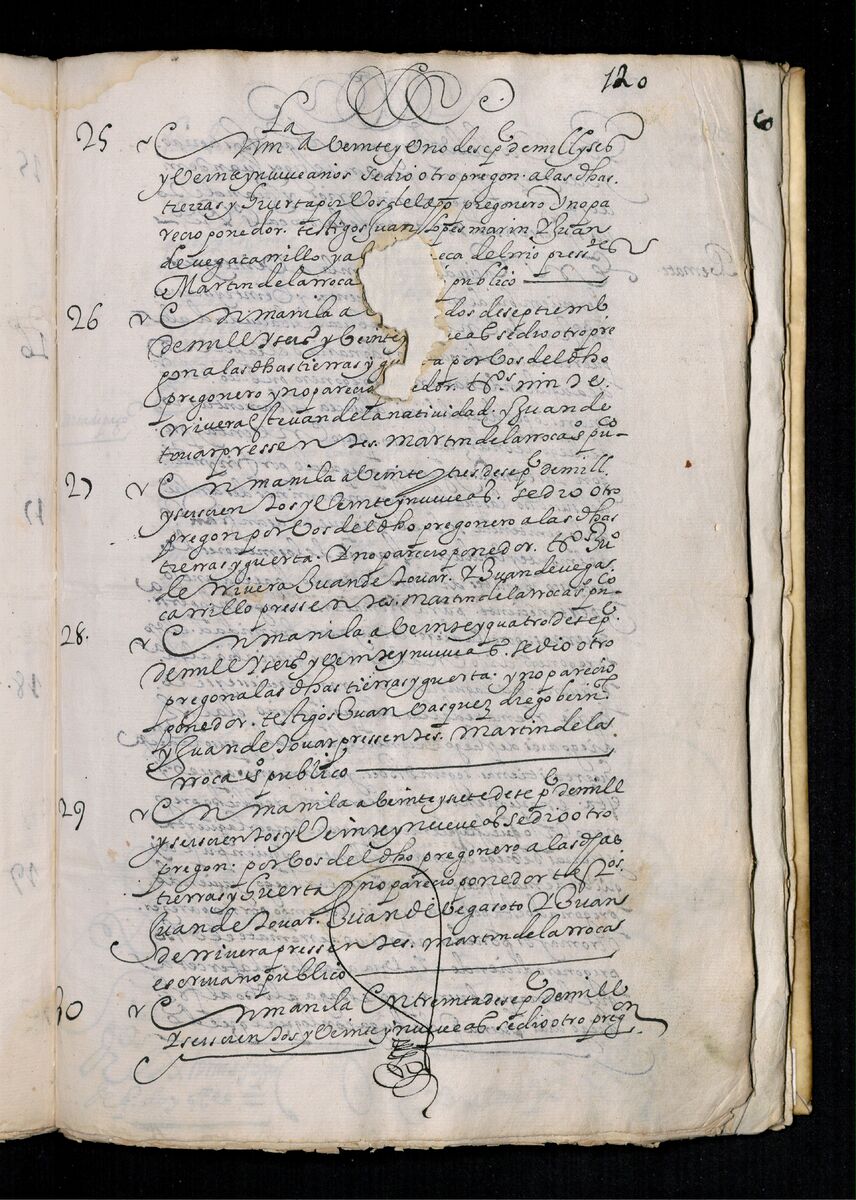 120
25 En mla a beinte y Uno de sep.e de mill y seis.o
y Veinte y nueue años se dio otro pregon. a las dhas.
tierras y huerta por Vos del dho pregonero Y no pa
recio ponedor. testigos Juan lopes marin Y Juan
de vega carrillo y a eca del rrio press.tes
Martin de la rroca publico
26 En manila a dos de septiemb.
de mill Y seis.o y beinte ue a.s se dio otro pre
gon a las dhas tierras y gu ta por Vos del dho
pregonero y no parecio edor. t.os min de
rriuera esteuan de la natiuidad. y Juan de
touar pressentes. martin de la rroca s.o pu.co
27 En manila a beinte y tres de sep.e de mill.
y seiscientos y Veinte y nueue a.s. se dio otro
pregon por Vos del dho pregonero a las dhas
tierras y guerta. Y no parecio ponedor. t.os Ju.o
de rriuera Juan de touar. Y Juan de vegas.
carrillo pressentes. martin de la rroca s.o pu.co
28. En manila a beinte y quatro de sep.e
de mill Y seis.o y Veinte y nueue a.s. se dio otro
pregon a las dhas tierras y guerta. y no parecio
ponedor. testigos Juan Vasquez diego
y Juan de touar pressentes. martin de la
rroca s.o publico
29 En manila a beinte y siete de sep.e de mill
y seiscientos y Veinte y nueue a.s se dio otro
pregon. por Vos del dho pregonero a las dhas
tierras y huerta Y no parecio ponedor t.os
Juan de touar. Juan de Vega soto Y Juan
de rriuera pressentes. martin de la rroca
escriuano publico
30 En manila En treinta de sep.e de mill
Y seiscientos y Veinte y nueue a.s se dio otro pregon